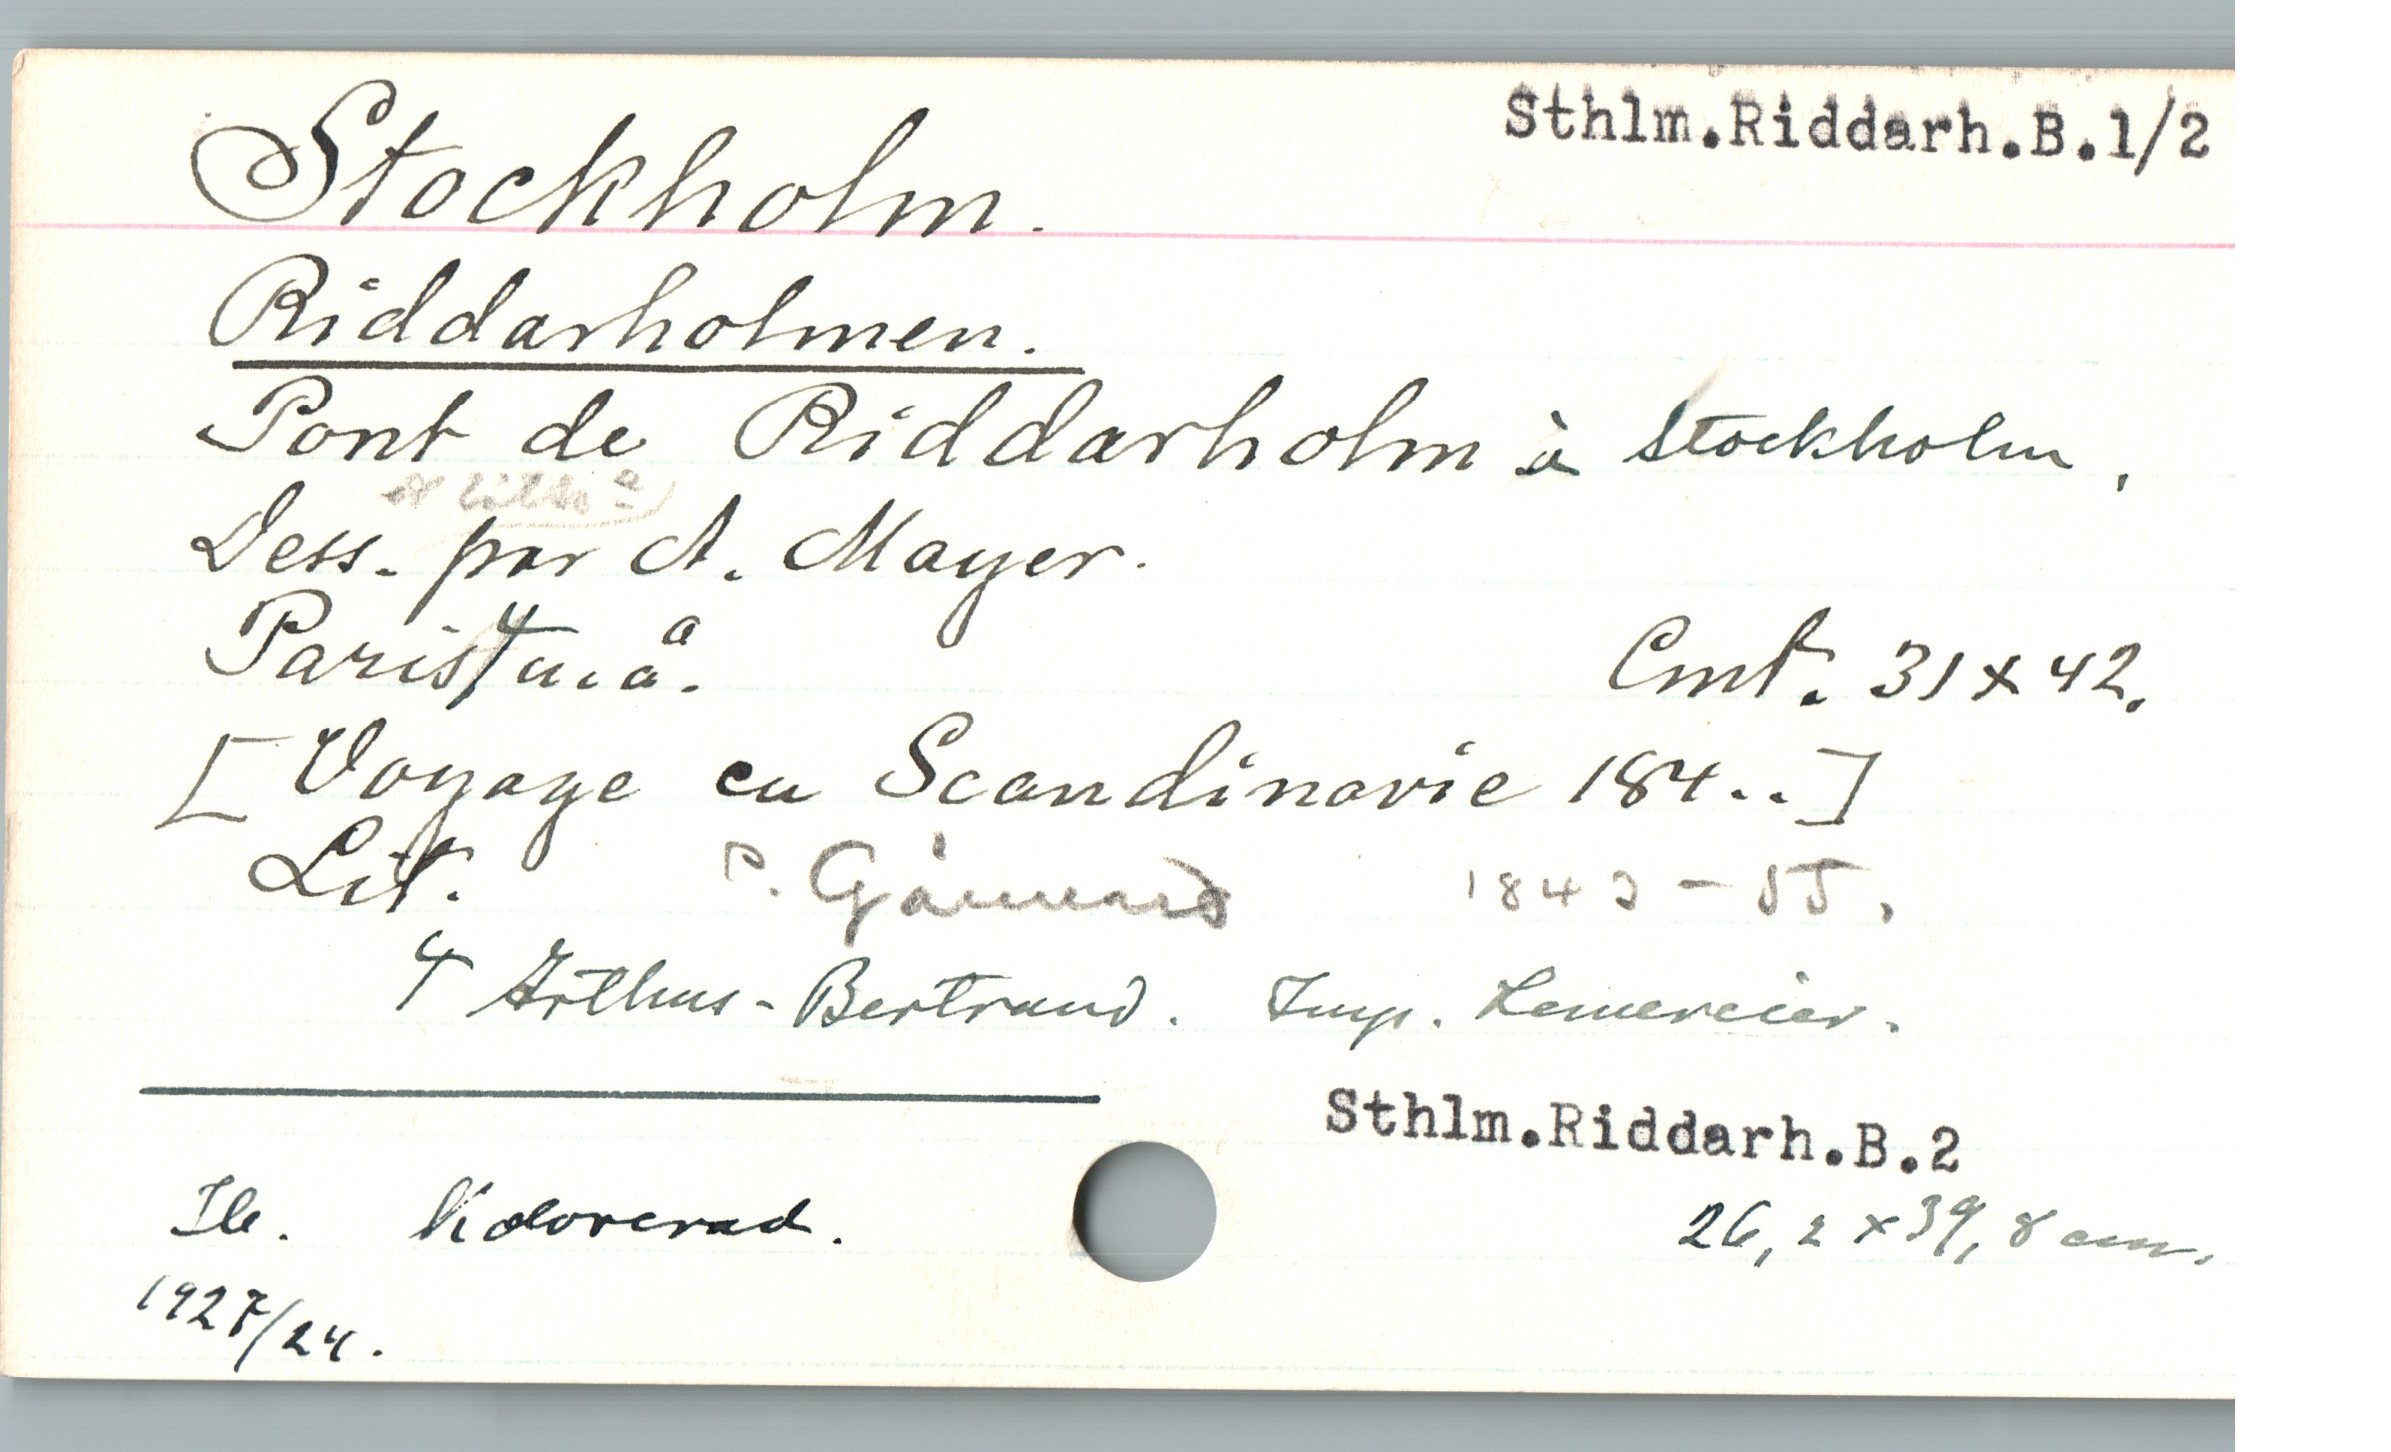 Sthlm.Riddarh.B.1/2
Stockholm.
Riddarholmen.
Pont de Riddarholm à Stockholm,
et litho
Dess. par A. Mayer.
Paris u.å. Cmt. 31 x 42.
[Voyage en Scandinavie 184..]
Lit. P. Gaimard 1843-55.
Arthus-Bertrand. Imp. Lemercier.
Sthlm.Riddarh.B.2
Ib. Kolorerad. 26,2 x 39,8 cm.
1927/24.